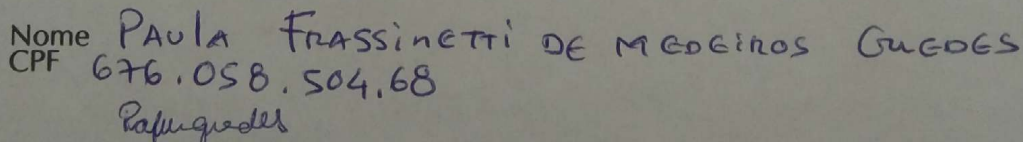 Nome PAULA FRASSINETTI DE MEDEIROS GUEDES
CPF 676.058.504.68